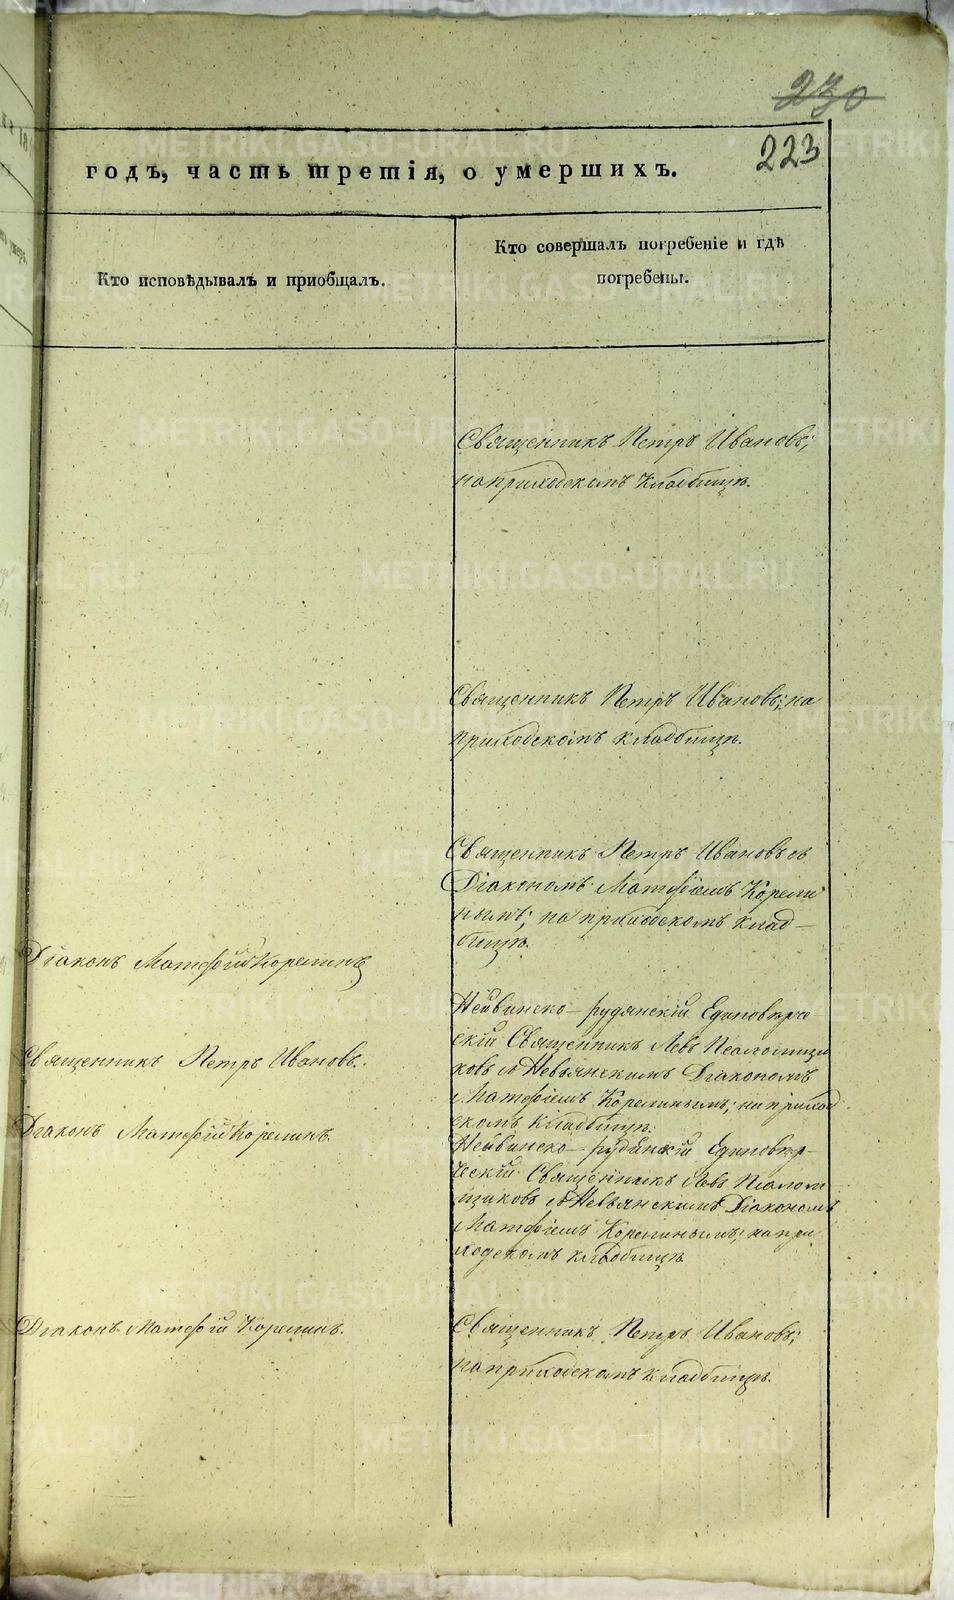 230
223
годъ, часть третія, о умершихъ.
Кто исповѣдывалъ и приобщалъ.
Кто совершалъ погребеніе и гдѣ
погребены.
Священникъ Петръ Ивановъ;
на приходскомъ кладбищѣ.
Священникъ Петръ Ивановъ; на
приходскомъ кладбищѣ.
Священникъ Петръ Ивановъ съ
Діакономъ Матѳіемъ Корели
нымъ; на приходскомъ клад-
бищѣ.
Діаконъ Матѳій Корелинъ
Нейвинско-рудянскій Единовѣрче
скій Священникъ Левъ Псаломщи
ковъ съ Невьянскимъ Діакономъ
Матѳіемъ Корелинымъ; на приход
скомъ кладбищѣ.
Священникъ Петръ Ивановъ.
Діаконъ Матѳій Корелинъ.
Нейвинско-рудянскій Единовѣр-
ческій Священникъ Левъ Псалом
щиковъ съ Невьянскимъ Діакономъ
Матѳіемъ Корелинымъ; на при
ходскомъ кладбищѣ
Діаконъ Матѳій Корелинъ.
Священникъ Петръ Ивановъ;
на приходскомъ кладбищѣ.
METRIKI.GASO-URAL.RU